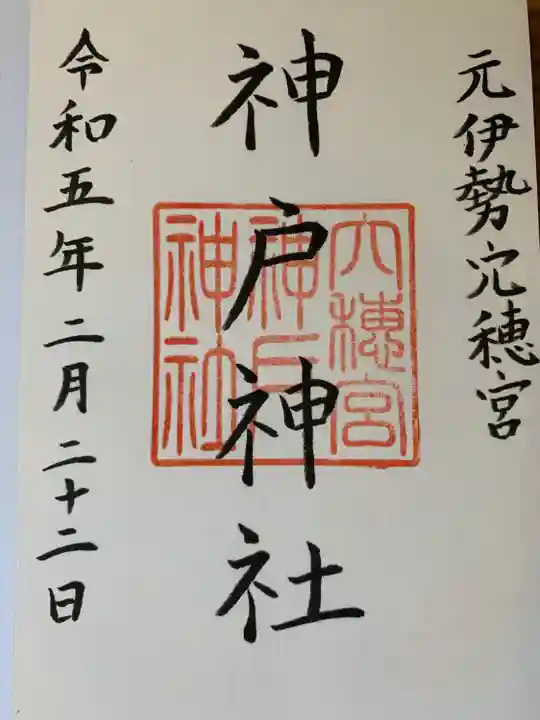 元伊勢穴穂宮
神戸神社
穴穂宮
神戸
神社
令和五年二月二十二日